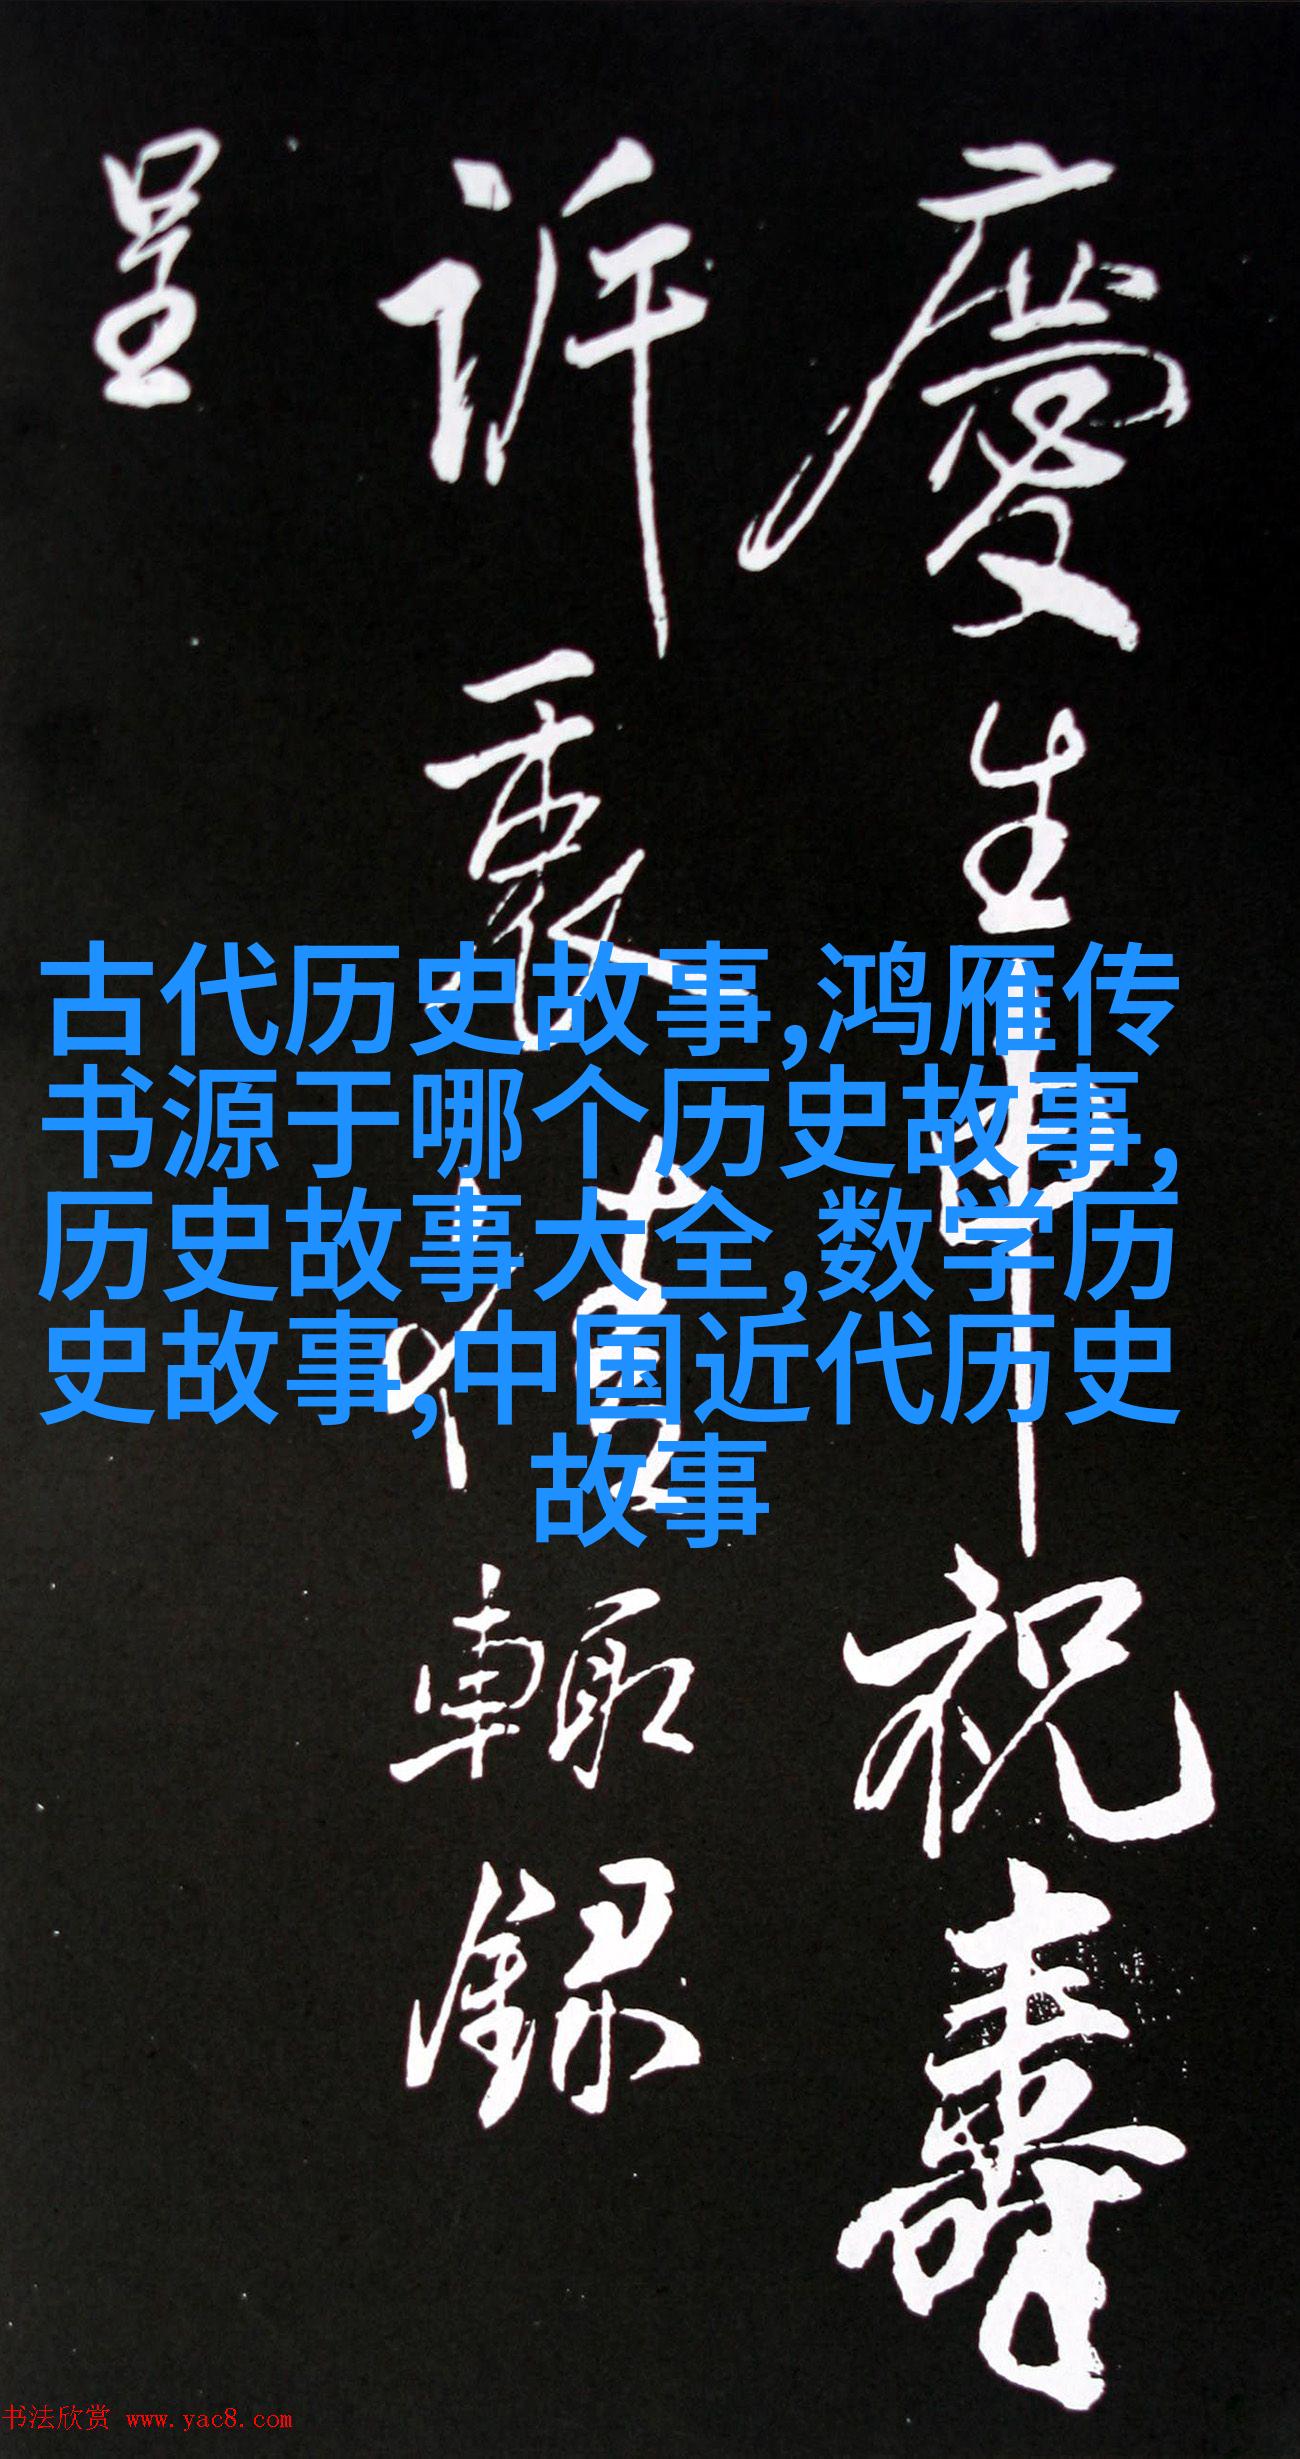 慶生申祝壽
訴衷情輒録
呈
古代历史故事,鸿雁传
书源于哪个历史故事,
历史故事大全,数学历
史故事,中国近代历史
故事
书法欣赏 www.yac8.com